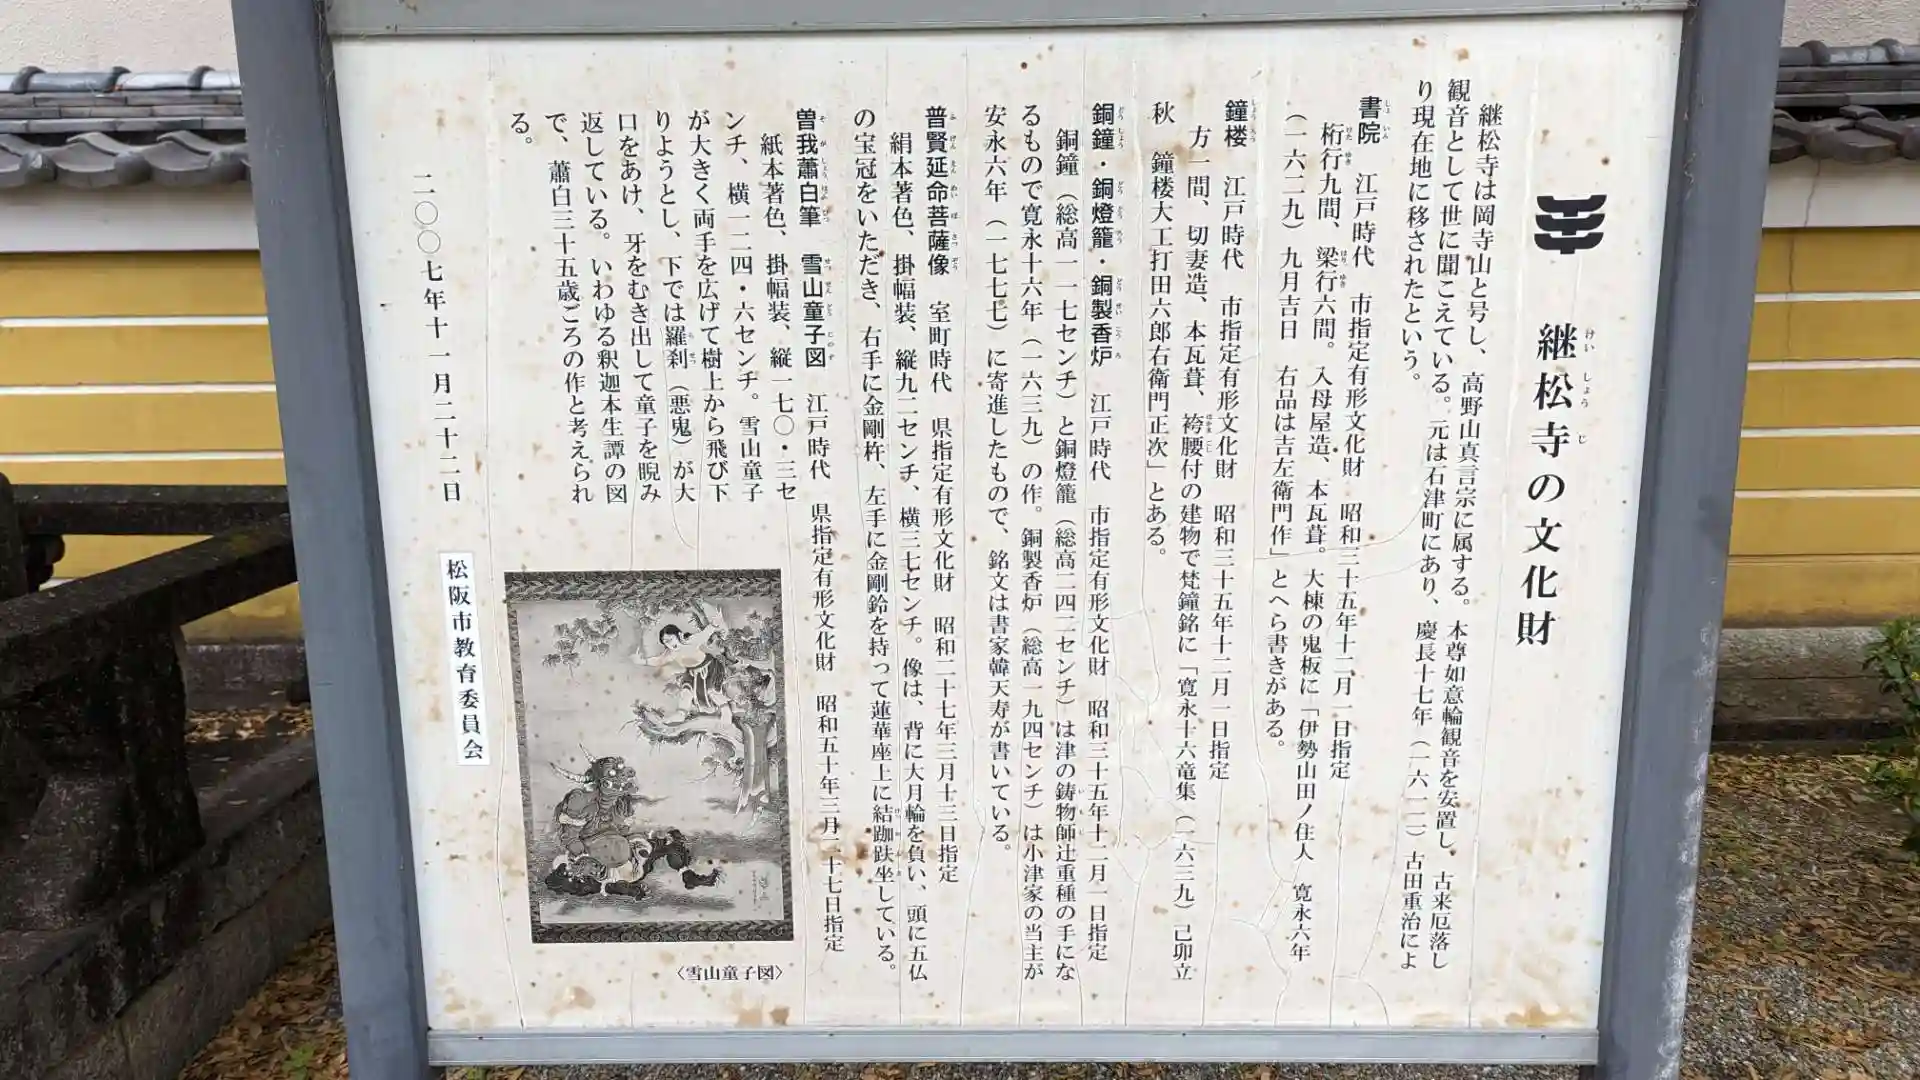 継松寺の文化財
継松寺は岡寺山と号し、高野山真言宗に属する。本尊如意輪観音を安置し、古来厄落し
観音として世に聞こえている。元は石津町にあり、慶長十七年（一六一二）古田重治によ
り現在地に移されたという。
書院　江戸時代　市指定有形文化財　昭和三十五年十二月一日指定
桁行九間、梁行六間。入母屋造、本瓦葺。大棟の鬼板に「伊勢山田ノ住人　寛永六年
（一六二九）九月吉日　右品は吉左衛門作」とへら書きがある。
鐘楼　江戸時代　市指定有形文化財　昭和三十五年十二月一日指定
方一間、切妻造、本瓦葺、袴腰付の建物で梵鐘銘に「寛永十六竜集（一六三九）己卯立
秋　鐘楼大工打田六郎右衛門正次」とある。
銅鐘・銅燈籠・銅製香炉　江戸時代　市指定有形文化財　昭和三十五年十二月一日指定
銅鐘（総高一一七センチ）と銅燈籠（総高二四二センチ）は津の鋳物師辻重種の手にな
るもので寛永十六年（一六三九）の作。銅製香炉（総高一九四センチ）は小津家の当主が
安永六年（一七七七）に寄進したもので、銘文は書家韓天寿が書いている。
普賢延命菩薩像　室町時代　県指定有形文化財　昭和二十七年三月十三日指定
絹本著色、掛幅装、縦九二センチ、横三七センチ。像は、背に大月輪を負い、頭に五仏
の宝冠をいただき、右手に金剛杵、左手に金剛鈴を持って蓮華座上に結跏趺坐している。
曽我蕭白筆　雪山童子図　江戸時代　県指定有形文化財　昭和五十年三月二十七日指定
紙本著色、掛幅装、縦一七〇・三セ
ンチ、横一二四・六センチ。雪山童子
が大きく両手を広げて樹上から飛び下
りようとし、下では羅刹（悪鬼）が大
口をあけ、牙をむき出して童子を睨み
返している。いわゆる釈迦本生譚の図
で、蕭白三十五歳ごろの作と考えられ
る。
〈雪山童子図〉
二〇〇七年十一月二十二日
松阪市教育委員会